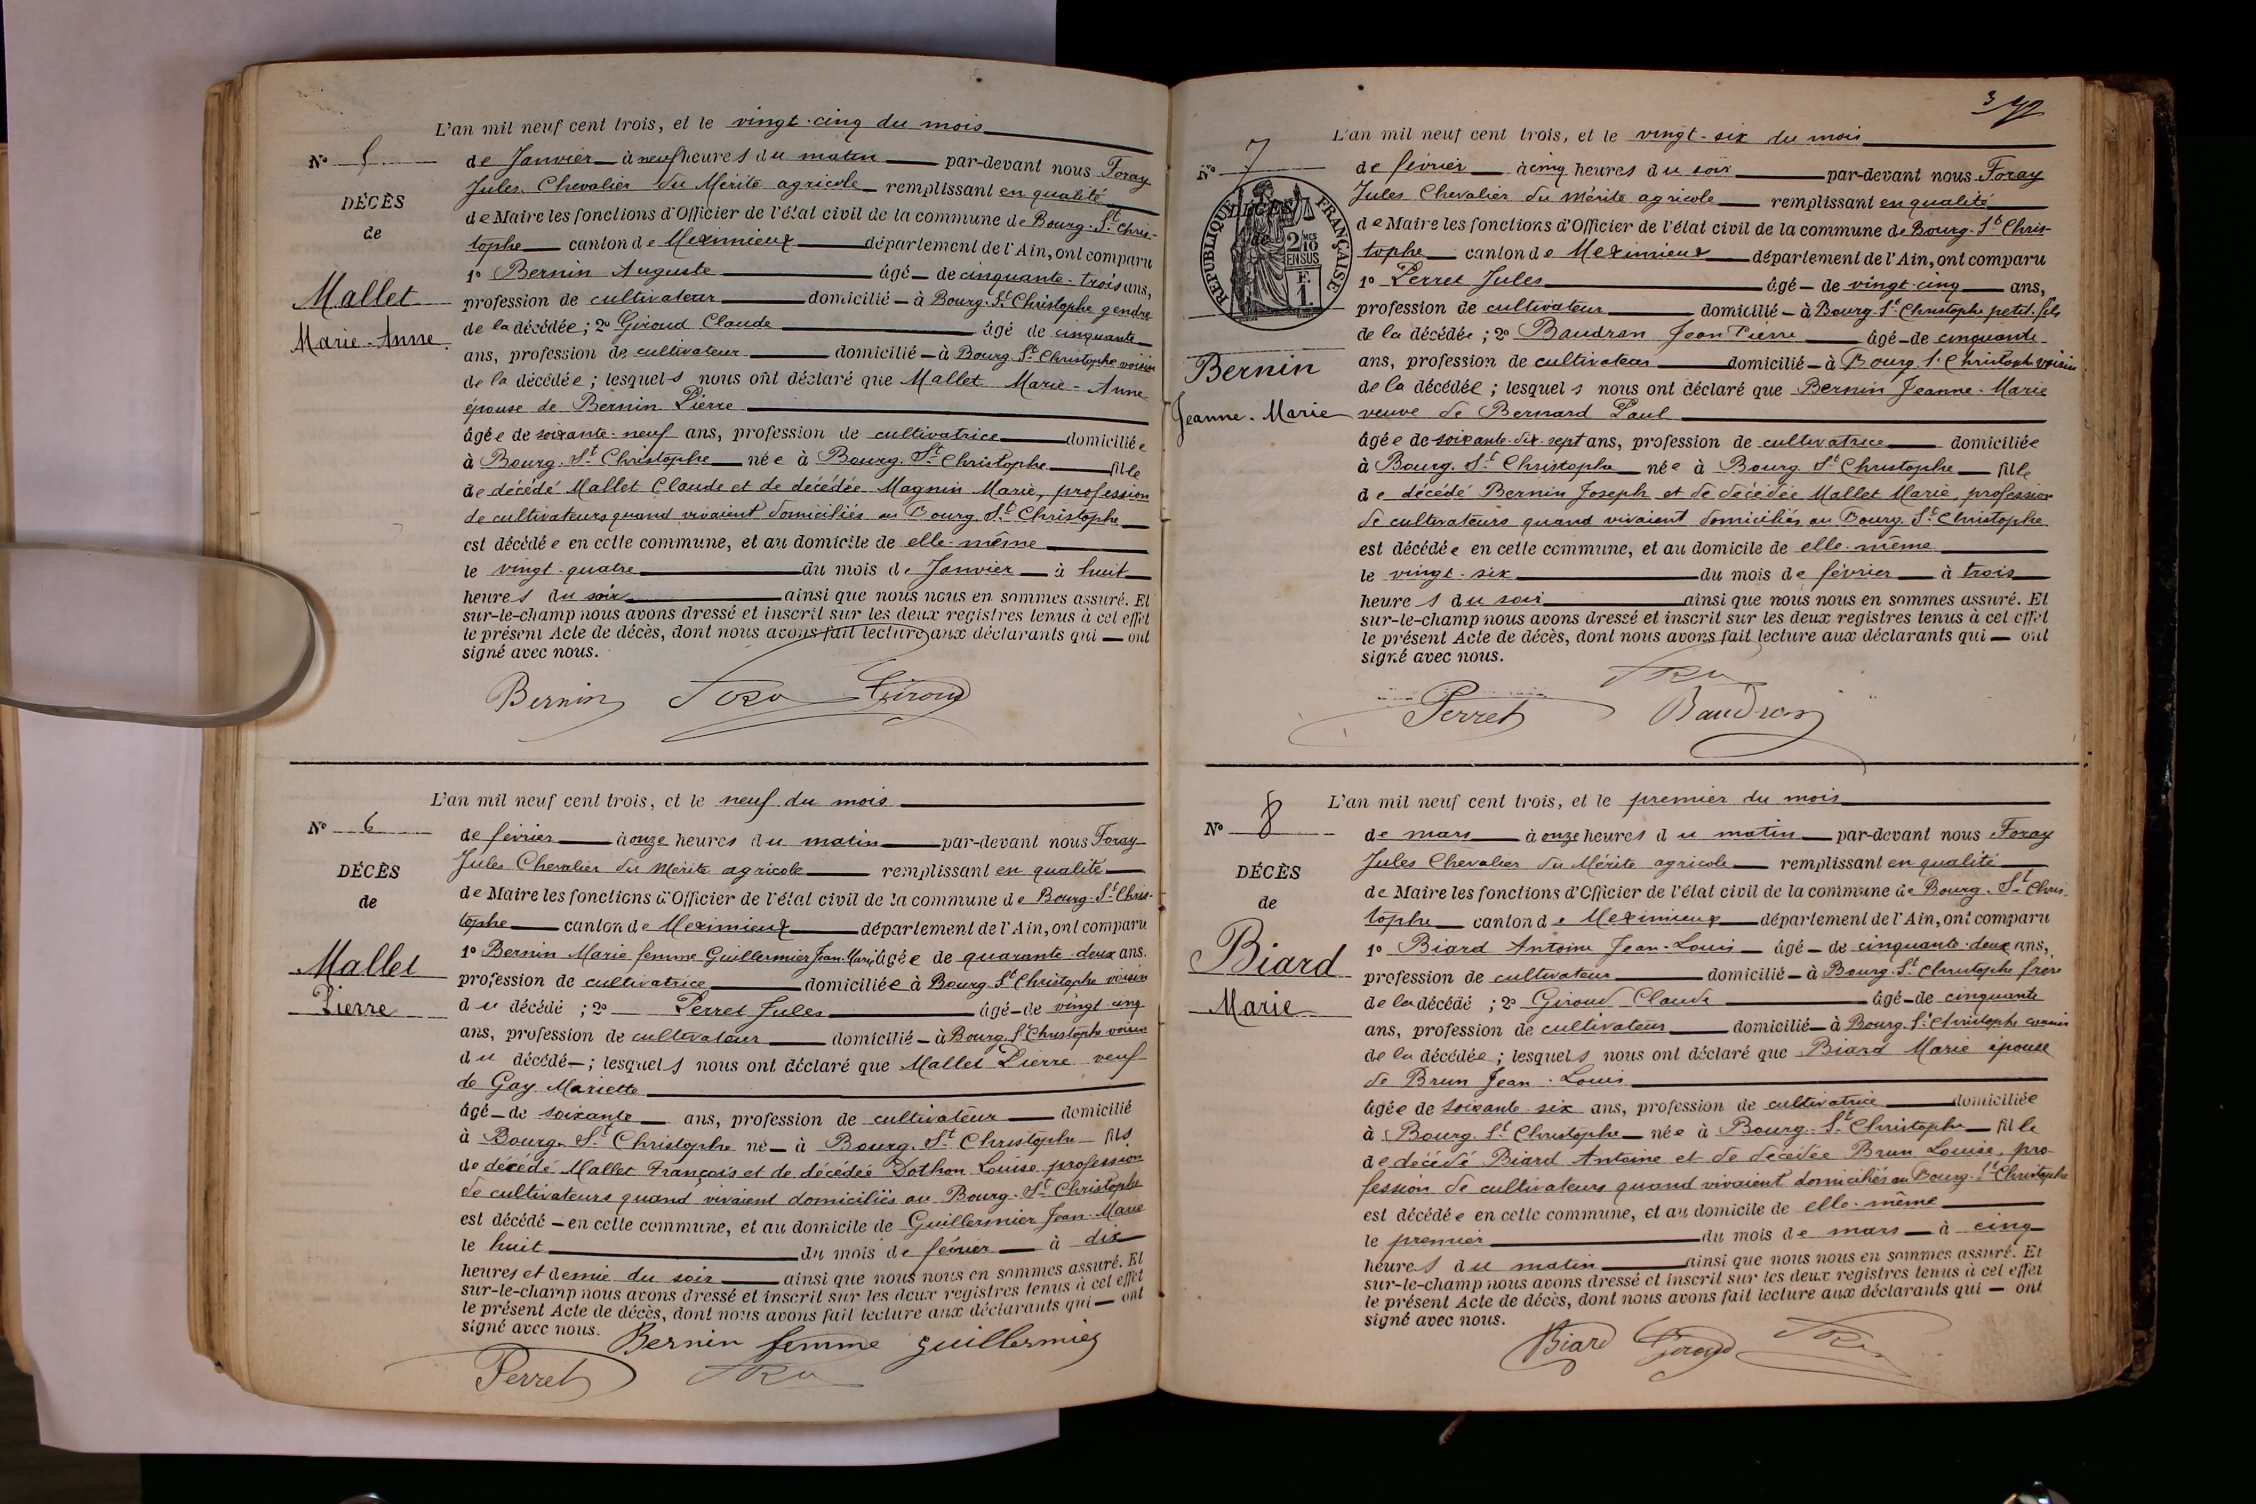 L'an mil neuf cent trois, et le vingt-cinq du mois
N° 5
de Janvier à neuf heures du matin par-devant nous Foray
DÉCÈS
de
Mallet
Marie-Anne
Jules Chevalier du Mérite agricole remplissant en qualité
de Maire les fonctions d'Officier de l'état civil de la commune de Bourg-St-Chris-
tophe canton de Meximieux département de l'Ain, ont comparu
1° Bernin Auguste âgé de cinquante-trois ans,
profession de cultivateur domicilié à Bourg-St-Christophe gendre
de la décédée ; 2° Giroud Claude âgé de cinquante
ans, profession de cultivateur domicilié à Bourg-St-Christophe voisin
de la décédée ; lesquels nous ont déclaré que Mallet Marie-Anne
épouse de Bernin Pierre
âgée de soixante-neuf ans, profession de cultivatrice domiciliée
à Bourg-St-Christophe née à Bourg-St-Christophe fille
de décédé Mallet Claude et de décédée Magnin Marie, profession
de cultivateurs quand vivaient domiciliés au Bourg-St-Christophe
est décédée en cette commune, et au domicile de elle-même
le vingt-quatre du mois de Janvier à huit
heures du soir ainsi que nous nous en sommes assuré. Et
sur-le-champ nous avons dressé et inscrit sur les deux registres tenus à cet effet
le présent Acte de décès, dont nous avons fait lecture aux déclarants qui ont
signé avec nous.
Bernin Giroud
L'an mil neuf cent trois, et le neuf du mois
N° 6
de février à onze heures du matin par-devant nous Foray
DÉCÈS
de
Mallet
Pierre
Jules Chevalier du Mérite agricole remplissant en qualité
de Maire les fonctions d'Officier de l'état civil de la commune de Bourg-St-Chris-
tophe canton de Meximieux département de l'Ain, ont comparu
1° Bernin Marie femme Guillermier Jean-Marie âgée de quarante-deux ans.
profession de cultivatrice domiciliée à Bourg-St-Christophe voisin
du décédé ; 2° Perret Jules âgé de vingt-cinq
ans, profession de cultivateur domicilié à Bourg-St-Christophe voisin
du décédé ; lesquels nous ont déclaré que Mallet Pierre veuf
de Gay Mariette
âgé de soixante ans, profession de cultivateur domicilié
à Bourg-St-Christophe né à Bourg-St-Christophe fils
de décédé Mallet François et de décédée Dothon Louise profession
de cultivateurs quand vivaient domiciliés au Bourg-St-Christophe
est décédé en cette commune, et au domicile de Guillermier Jean-Marie
le huit du mois de février à dix
heures et demie du soir ainsi que nous nous en sommes assuré. Et
sur-le-champ nous avons dressé et inscrit sur les deux registres tenus à cet effet
le présent Acte de décès, dont nous avons fait lecture aux déclarants qui ont
signé avec nous.
Bernin femme guillermier
Perret
L'an mil neuf cent trois, et le vingt-six du mois
N° 7
de février à cinq heures du soir par-devant nous Foray
DÉCÈS
de
RÉPUBLIQUE FRANÇAISE
2/10 EN SUS
F. 1.
Bernin
Jeanne-Marie
Jules Chevalier du Mérite agricole remplissant en qualité
de Maire les fonctions d'Officier de l'état civil de la commune de Bourg-St-Chris-
tophe canton de Meximieux département de l'Ain, ont comparu
1° Perret Jules âgé de vingt-cinq ans,
profession de cultivateur domicilié à Bourg-St-Christophe petit-fils
de la décédée ; 2° Baudran Jean Pierre âgé de cinquante
ans, profession de cultivateur domicilié à Bourg-St-Christophe voisin
de la décédée ; lesquels nous ont déclaré que Bernin Jeanne-Marie
veuve de Bernard Paul
âgée de soixante-dix-sept ans, profession de cultivatrice domiciliée
à Bourg-St-Christophe née à Bourg-St-Christophe fille
de décédé Bernin Joseph et de décédée Mallet Marie, profession
de cultivateurs quand vivaient domiciliés au Bourg-St-Christophe
est décédée en cette commune, et au domicile de elle-même
le vingt-six du mois de février à trois
heures du soir ainsi que nous nous en sommes assuré. Et
sur-le-champ nous avons dressé et inscrit sur les deux registres tenus à cet effet
le présent Acte de décès, dont nous avons fait lecture aux déclarants qui ont
signé avec nous.
Perret Baudran
L'an mil neuf cent trois, et le premier du mois
N° 8
de mars à onze heures du matin par-devant nous Foray
DÉCÈS
de
Biard
Marie
Jules Chevalier du Mérite agricole remplissant en qualité
de Maire les fonctions d'Officier de l'état civil de la commune de Bourg-St-Chris-
tophe canton de Meximieux département de l'Ain, ont comparu
1° Biard Antoine Jean-Louis âgé de cinquante-deux ans,
profession de cultivateur domicilié à Bourg-St-Christophe frère
de la décédé ; 2° Giroud Claude âgé de cinquante
ans, profession de cultivateur domicilié à Bourg-St-Christophe cousin
de la décédée ; lesquels nous ont déclaré que Biard Marie épouse
de Brun Jean-Louis
âgée de soixante-six ans, profession de cultivatrice domiciliée
à Bourg-St-Christophe née à Bourg-St-Christophe fille
de décédé Biard Antoine et de décédée Brun Louise, pro-
fession de cultivateurs quand vivaient domiciliés au Bourg-St-Christophe
est décédée en cette commune, et au domicile de elle-même
le premier du mois de mars à cinq
heures du matin ainsi que nous nous en sommes assuré. Et
sur-le-champ nous avons dressé et inscrit sur les deux registres tenus à cet effet
le présent Acte de décès, dont nous avons fait lecture aux déclarants qui ont
signé avec nous.
Biard Giroud